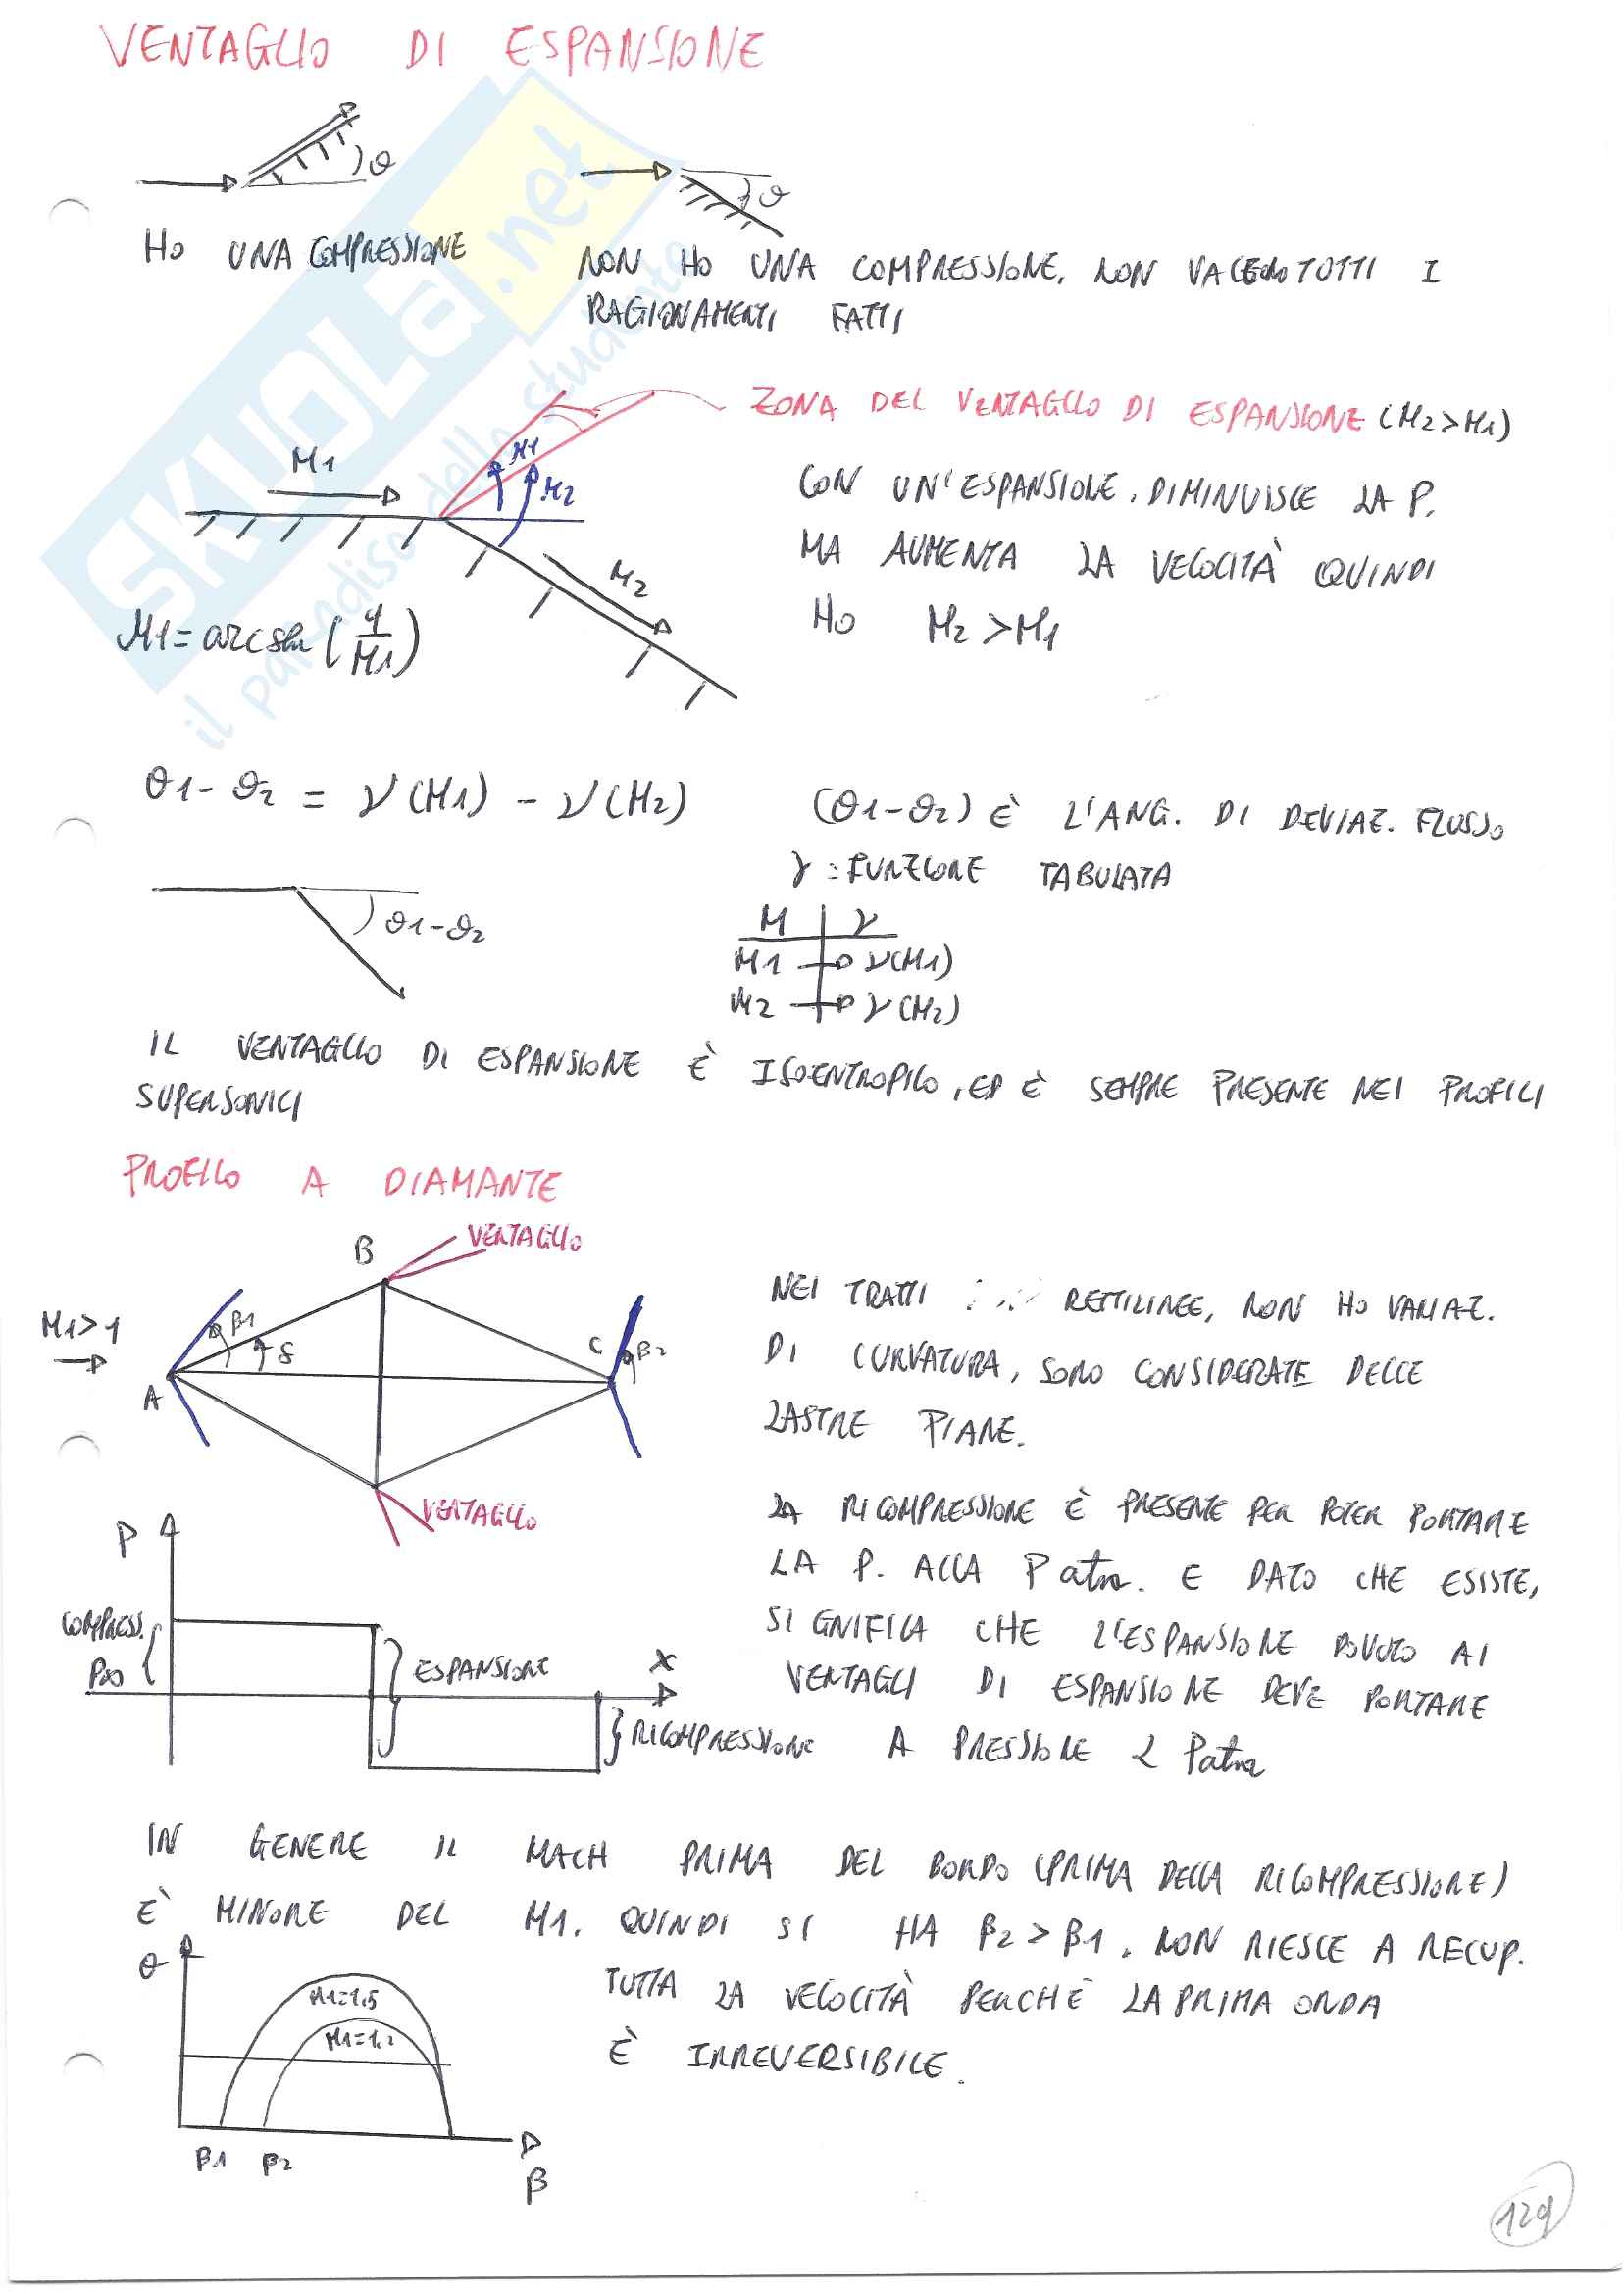 VENTAGLIO DI ESPANSIONE
θ
θ
HO UNA COMPRESSIONE
NON HO UNA COMPRESSIONE, NON VALGONO TUTTI I
RAGIONAMENTI FATTI
ZONA DEL VENTAGLIO DI ESPANSIONE (M2>M1)
M1
μ1
μ2
M2
CON UN'ESPANSIONE, DIMINUISCE LA P.
MA AUMENTA LA VELOCITÀ QUINDI
HO M2 > M1
μ1 = arcsen (1/M1)
θ1 - θ2 = ν(M1) - ν(M2)
(θ1-θ2) È L'ANG. DI DEVIAZ. FLUSSO
ν : FUNZIONE TABULATA
θ1-θ2
M ν
M1 → ν(M1)
M2 → ν(M2)
IL VENTAGLIO DI ESPANSIONE È ISOENTROPICO, ED È SEMPRE PRESENTE NEI PROFILI
SUPERSONICI
PROFILO A DIAMANTE
VENTAGLIO
B
M1>1
β1
δ
A
C
β2
VENTAGLIO
NEI TRATTI RETTILINEE, NON HO VARIAZ.
DI CURVATURA, SONO CONSIDERATE DELLE
LASTRE PIANE.
LA RICOMPRESSIONE È PRESENTE PER POTER PORTARE
LA P. ALLA Patm. E DATO CHE ESISTE,
SIGNIFICA CHE L'ESPANSIONE DOVUTO AI
VENTAGLI DI ESPANSIONE DEVE PORTARE
A PRESSIONE < Patm
P
COMPRESS.
P∞
ESPANSIONE
X
RICOMPRESSIONE
IN GENERE IL MACH PRIMA DEL BORDO (PRIMA DELLA RICOMPRESSIONE)
È MINORE DEL M1. QUINDI SI HA β2 > β1. NON RIESCE A RECUP.
TUTTA LA VELOCITÀ PERCHÈ LA PRIMA ONDA
È IRREVERSIBILE.
θ
M1=1,5
M1=1,2
β1 β2
β
129
SKUOLa.net
il paradiso dello studente